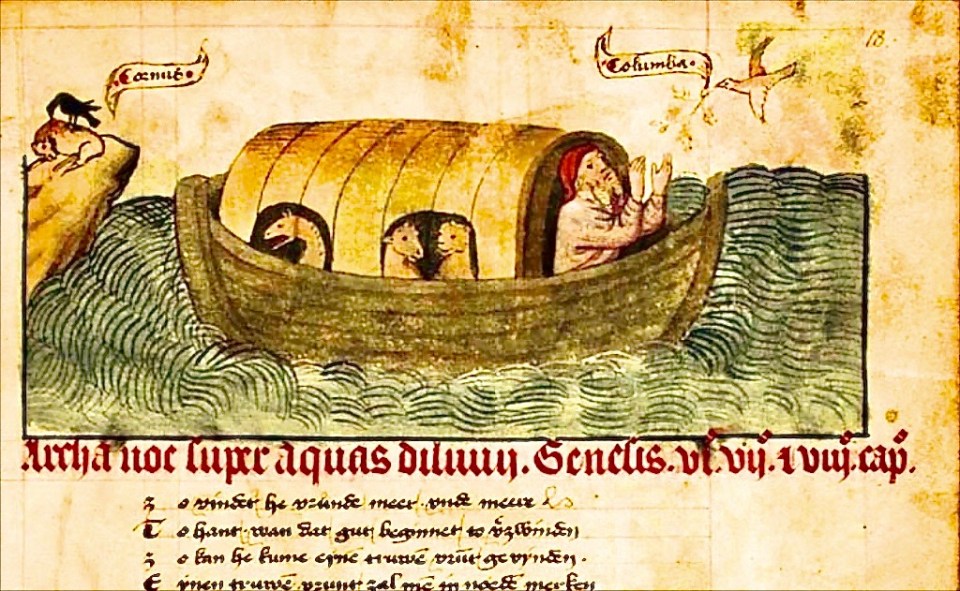 18.
Corvus.
Columba.
Archa noe super aquas diluuij. Genesis. vj. vijº. ⁊ viijº. capº.
z o vindet he vrunde meer vnde meur
T o hant wan dat gut beginnet to v̄zwinden
z o kan he kume eyne truwē vrūt gevynden.
E ynen truwē vrunt zal mē in noedē merken